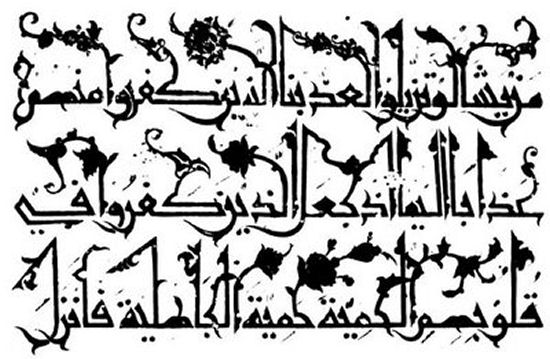 من يشا لو تزيلوا لعذبنا الذين كفروا منهم
عذابا اليما اذ جعل الذين كفروا في
قلوبهم الحمية حمية الجاهلية فانزل